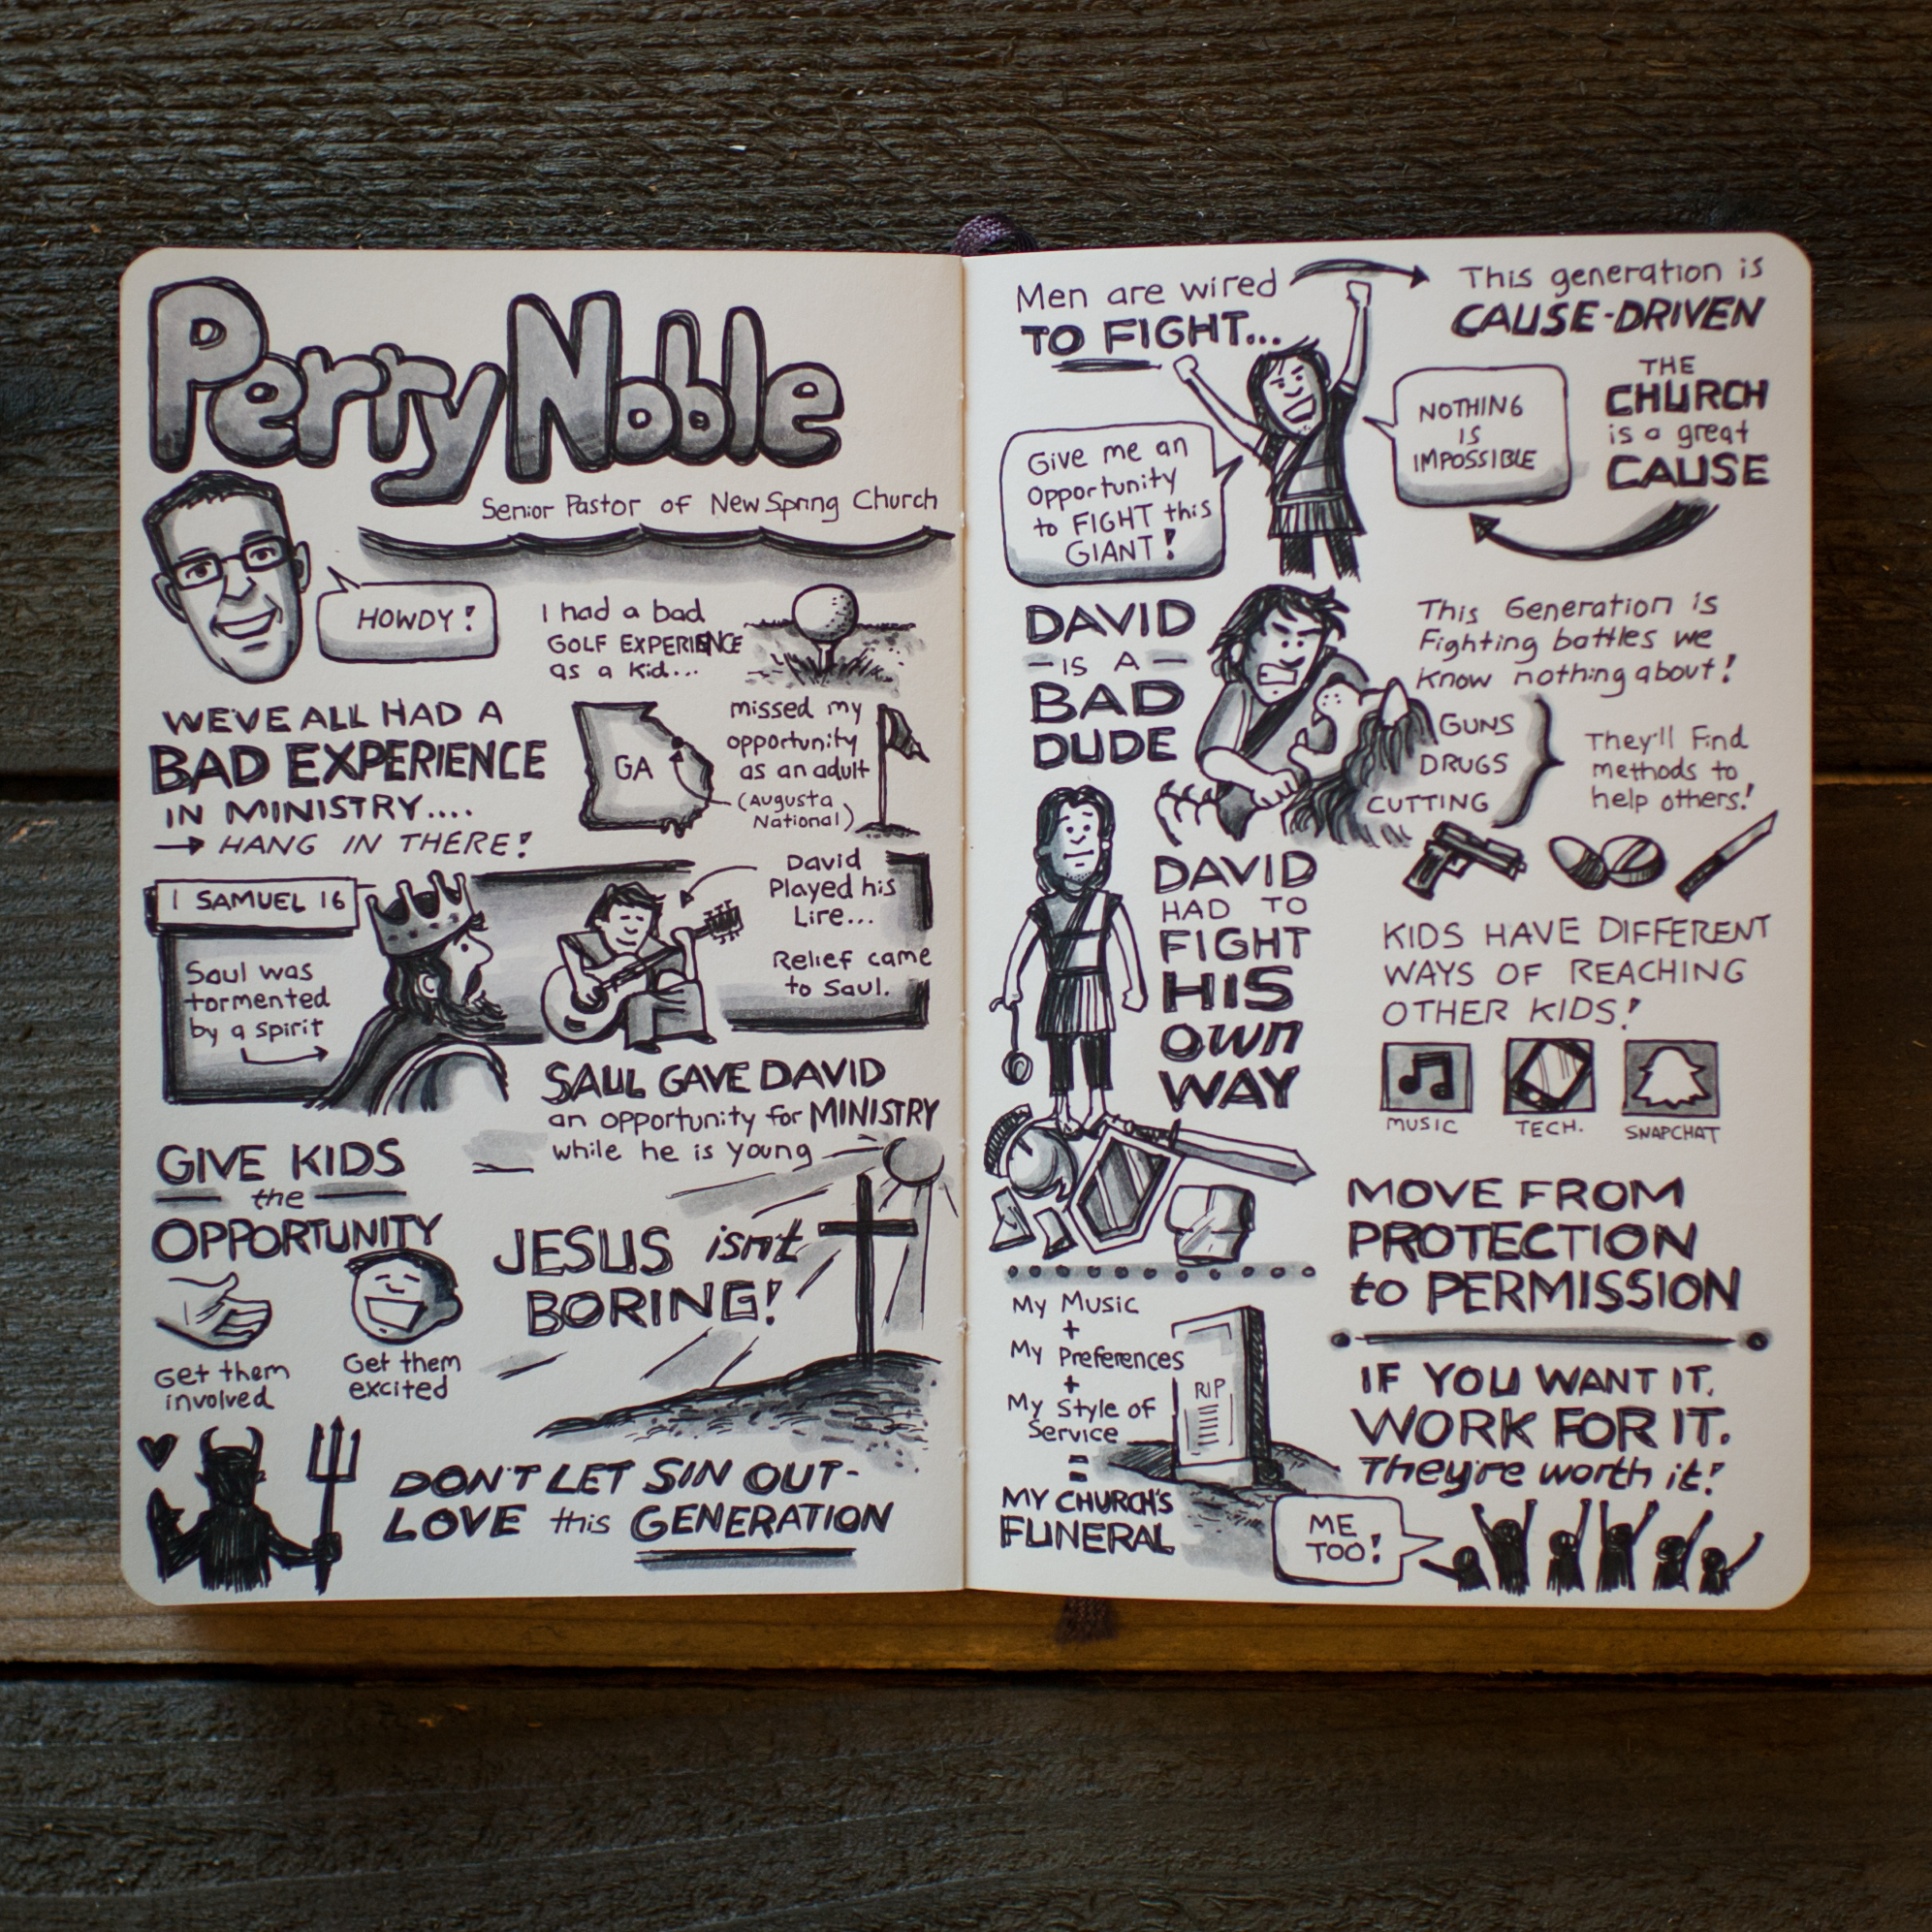 Perry Noble
Senior Pastor of NewSpring Church
HOWDY!
I had a bad
GOLF EXPERIENCE
as a kid...
WE'VE ALL HAD A
BAD EXPERIENCE
IN MINISTRY....
→ HANG IN THERE!
GA
missed my
opportunity
as an adult
(Augusta
National)
1 SAMUEL 16
Saul was
tormented
by a spirit
David
Played his
Lire...
Relief came
to Saul.
SAUL GAVE DAVID
an opportunity for MINISTRY
while he is young
GIVE KIDS
the
OPPORTUNITY
Get them
involved
Get them
excited
JESUS isn't
BORING!
DON'T LET SIN OUT-
LOVE this GENERATION
Men are wired
TO FIGHT...
This generation is
CAUSE-DRIVEN
Give me an
Opportunity
to FIGHT this
GIANT!
NOTHING
IS
IMPOSSIBLE
THE
CHURCH
is a great
CAUSE
DAVID
- IS A -
BAD
DUDE
This Generation is
Fighting battles we
know nothing about!
GUNS
DRUGS
CUTTING
They'll Find
methods to
help others!
DAVID
HAD TO
FIGHT
HIS
OWN
WAY
KIDS HAVE DIFFERENT
WAYS OF REACHING
OTHER KIDS!
MUSIC
TECH.
SNAPCHAT
MOVE FROM
PROTECTION
to PERMISSION
My Music
+
My Preferences
+
My Style of
Service
=
MY CHURCH'S
FUNERAL
RIP
IF YOU WANT IT,
WORK FOR IT.
They're worth it!
ME
TOO!